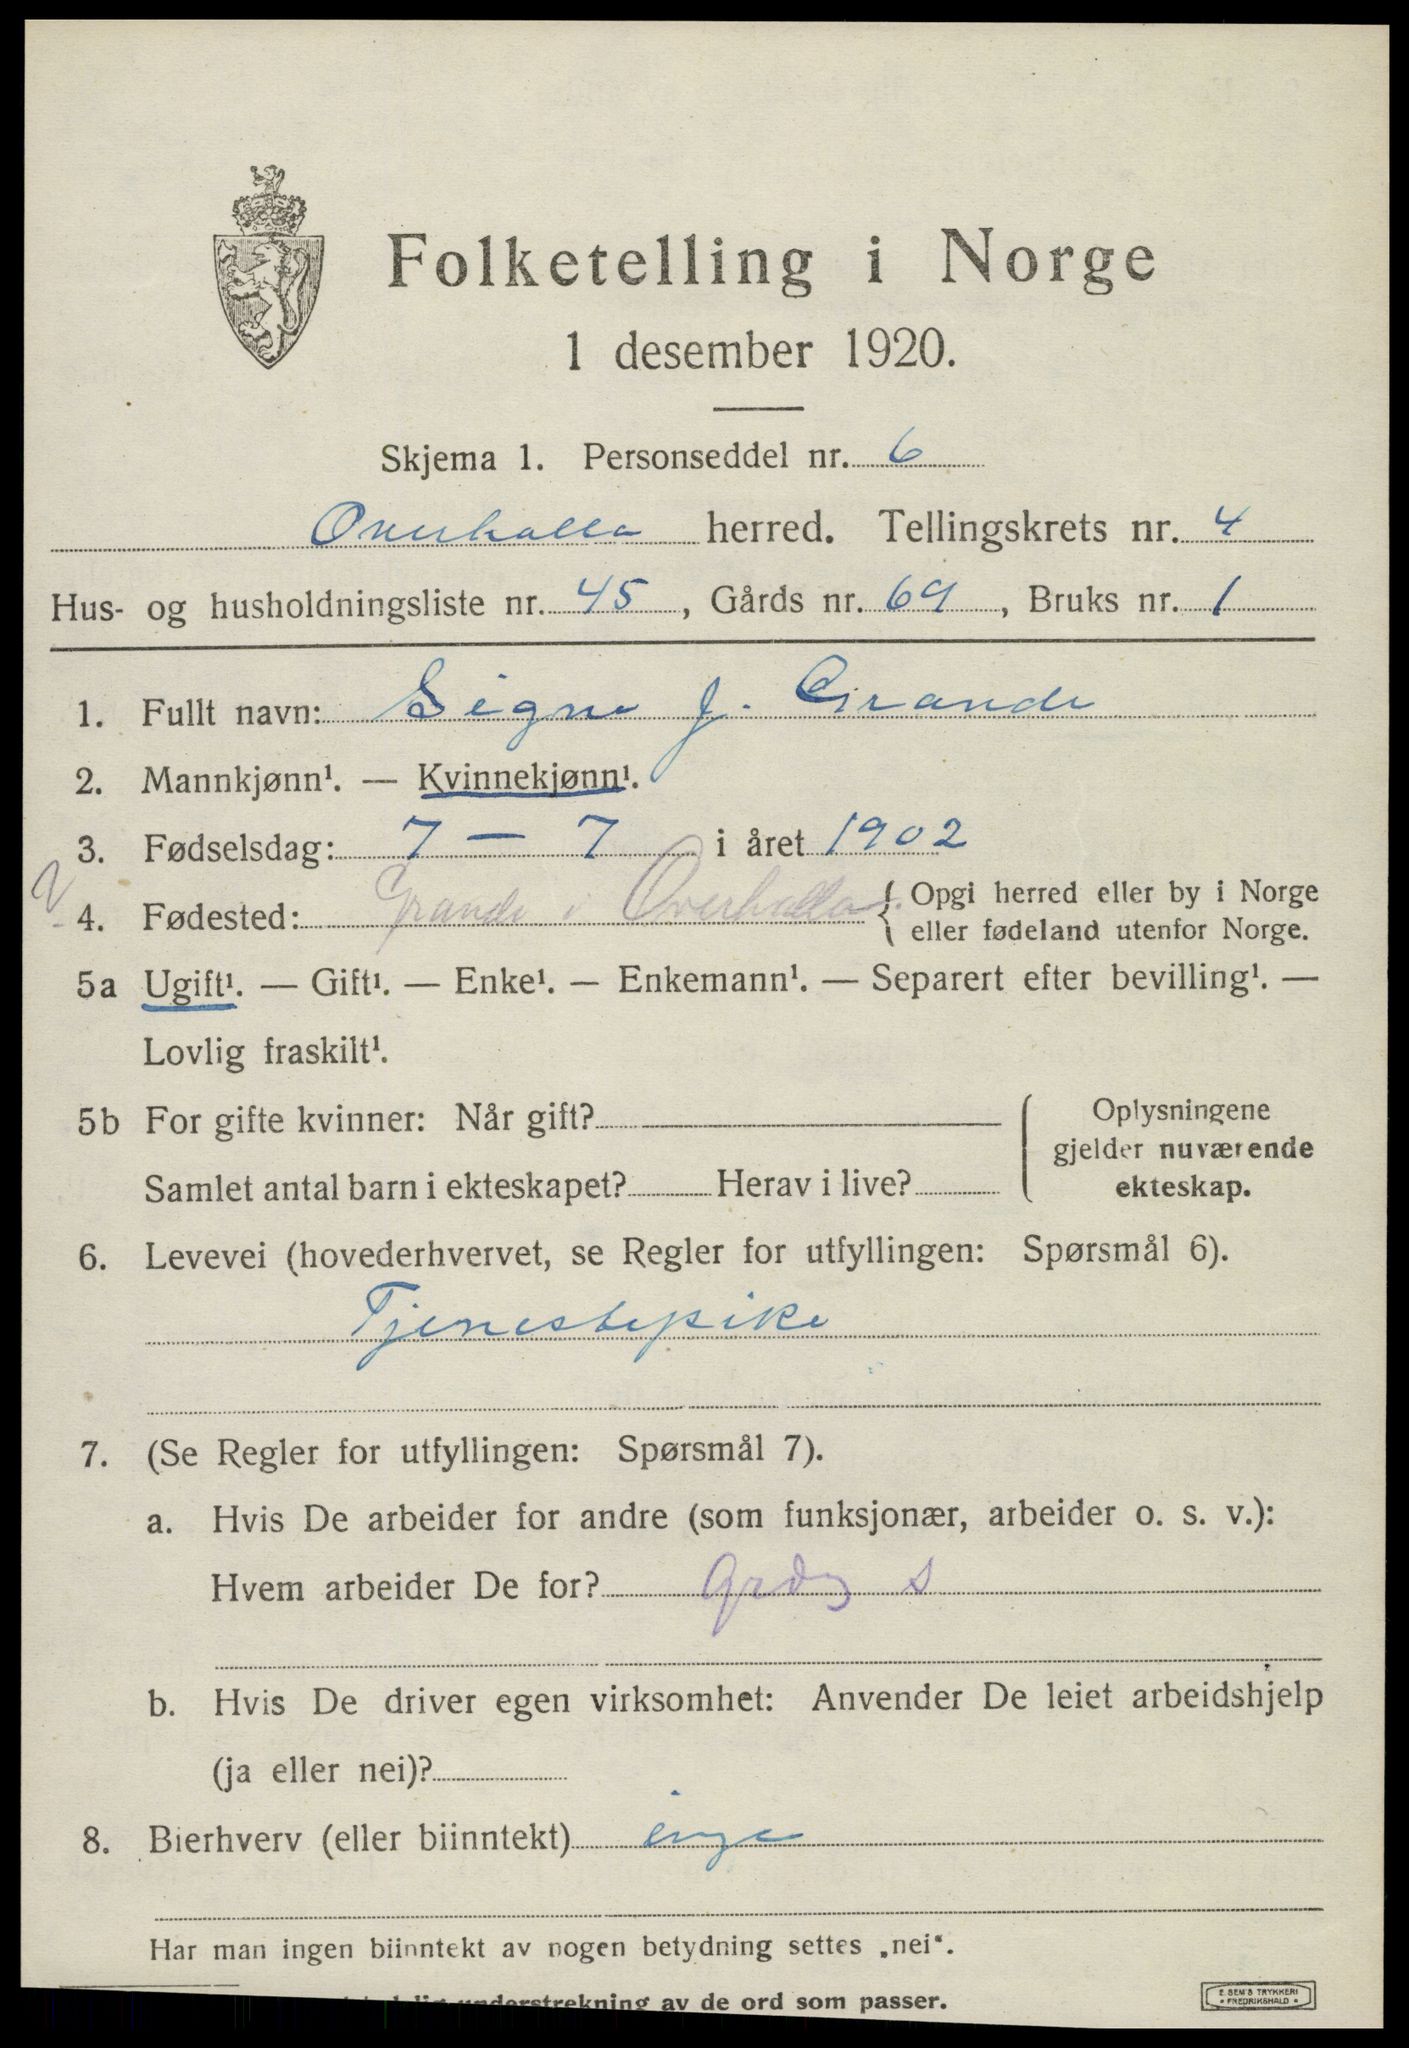 Folketelling i Norge
1 desember 1920.
Skjema 1. Personseddel nr. 6
Overhalla herred. Tellingskrets nr. 4
Hus- og husholdningsliste nr. 45, Gårds nr. 69, Bruks nr. 1
1. Fullt navn: Signe J. Grande
2. Mannkjønn¹. — Kvinnekjønn¹.
3. Fødselsdag: 7 — 7 i året 1902
4. Fødested: Grande i Overhalla. { Opgi herred eller by i Norge
eller fødeland utenfor Norge.
5a Ugift¹. — Gift¹. — Enke¹. — Enkemann¹. — Separert efter bevilling¹. —
Lovlig fraskilt¹.
5b For gifte kvinner: Når gift?
Samlet antal barn i ekteskapet? Herav i live?
Oplysningene
gjelder nuværende
ekteskap.
6. Levevei (hovederhvervet, se Regler for utfyllingen: Spørsmål 6).
Tjenestepike
7. (Se Regler for utfyllingen: Spørsmål 7).
a. Hvis De arbeider for andre (som funksjonær, arbeider o. s. v.):
Hvem arbeider De for? s
b. Hvis De driver egen virksomhet: Anvender De leiet arbeidshjelp
(ja eller nei)?
8. Bierhverv (eller biinntekt)
Har man ingen biinntekt av nogen betydning settes „nei“.
understrekning av de ord som passer.
E. SEM'S TRYKKERI
• FREDRIKSHALD •